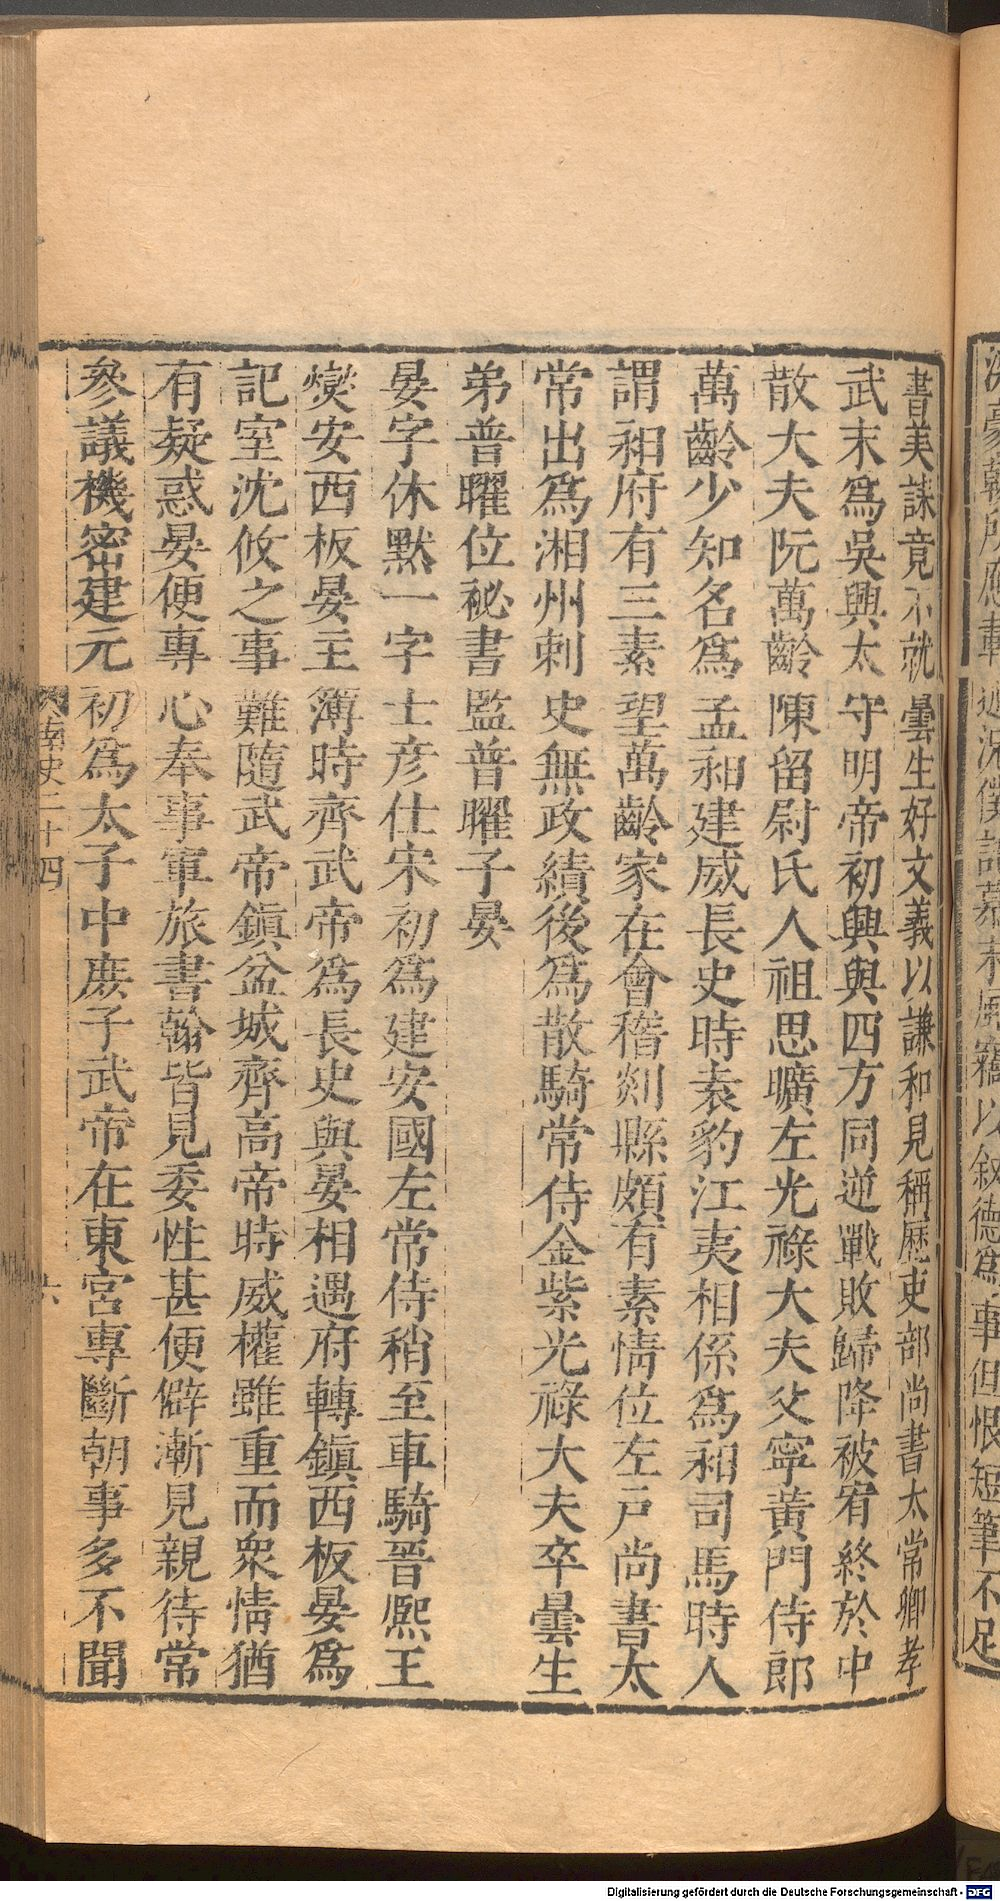 書美誄竟不就曇生好文義以謙和見稱歷吏部尚書太常卿孝
武末爲吳興太守明帝初興與四方同逆戰敗歸降被宥終於中
散大夫阮萬齡陳留尉氏人祖思曠左光祿大夫父寧黃門侍郎
萬齡少知名爲孟昶建威長史時袁豹江夷相係爲昶司馬時人
謂昶府有三素望萬齡家在會稽剡縣頗有素情位左戶尚書太
常出爲湘州刺史無政績後爲散騎常侍金紫光祿大夫卒曇生
弟普曜位祕書監普曜子晏
晏字休默一字士彥仕宋初爲建安國左常侍稍至車騎晉熙王
爕安西板晏主簿時齊武帝爲長史與晏相遇府轉鎮西板晏爲
記室沈攸之事難隨武帝鎮盆城齊高帝時威權雖重而衆情猶
有疑惑晏便專心奉事軍旅書翰皆見委性甚便僻漸見親待常
參議機密建元初爲太子中庶子武帝在東宮專斷朝事多不聞
南史二十四 六
所應 近況 風 以敘德爲事但恨短筆不足
Digitalisierung gefördert durch die Deutsche Forschungsgemeinschaft - DFG